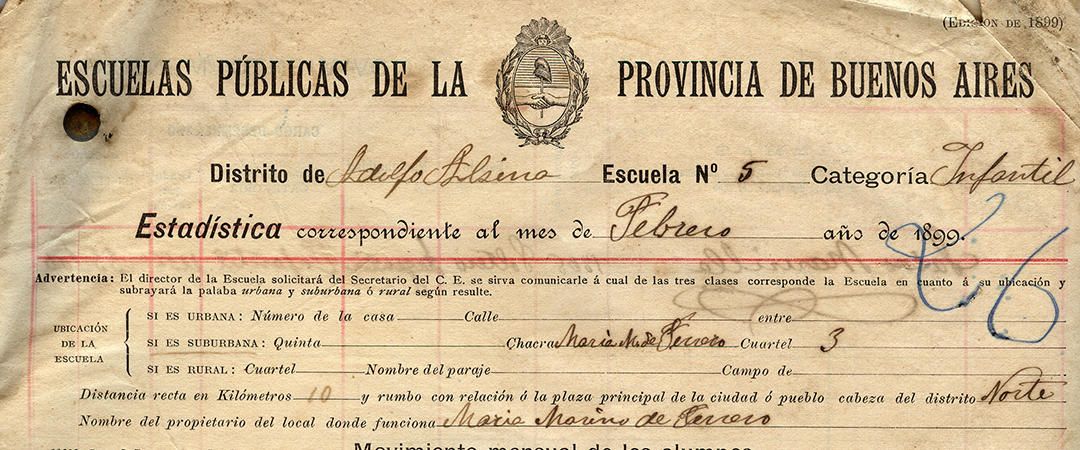 (Edición de 1899)
ESCUELAS PÚBLICAS DE LA PROVINCIA DE BUENOS AIRES
Distrito de Adolfo Alsina Escuela Nº 5 Categoría Infantil
Estadística correspondiente al mes de Febrero año de 1899.
26
Advertencia: El director de la Escuela solicitará del Secretario del C. E. se sirva comunicarle á cual de las tres clases corresponde la Escuela en cuanto á su ubicación y
subrayará la palaba urbana y suburbana ó rural según resulte.
UBICACIÓN DE LA ESCUELA
SI ES URBANA: Número de la casa Calle entre
SI ES SUBURBANA: Quinta Chacra Maria M. de Ferrero Cuartel 3
SI ES RURAL: Cuartel Nombre del paraje Campo de
Distancia recta en Kilómetros 10 y rumbo con relación á la plaza principal de la ciudad ó pueblo cabeza del distrito Norte
Nombre del propietario del local donde funciona Maria Marino de Ferrero
Movimiento mensual de los alumnos